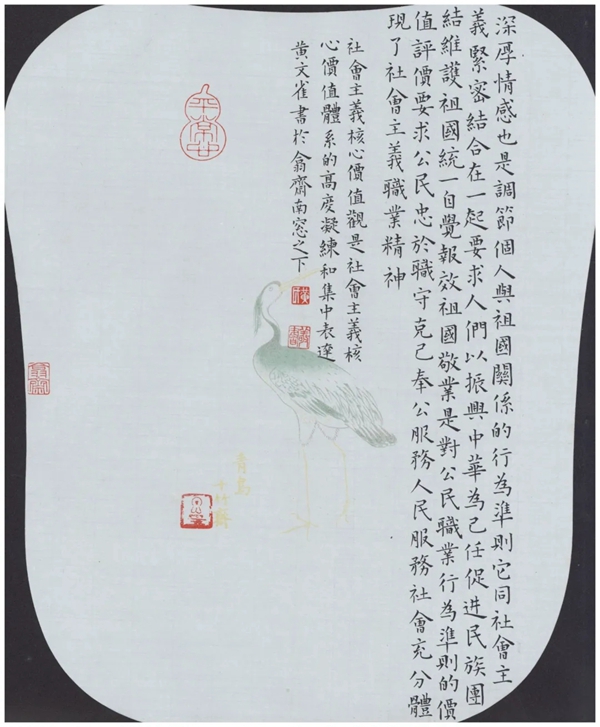 深厚情感也是調節個人與祖國關係的行為準則它同社會主
義緊密結合在一起要求人們以振興中華為己任促進民族團
結維護祖國統一自覺報效祖國敬業是對公民職業行為準則的價
值評價要求公民忠於職守克己奉公服務人民服務社會充分體
現了社會主義職業精神
社會主義核心價值觀是社會主義核
心價值體系的高度凝練和集中表達
黃文雀書於翕齋南窓之下
平常心
青鳥